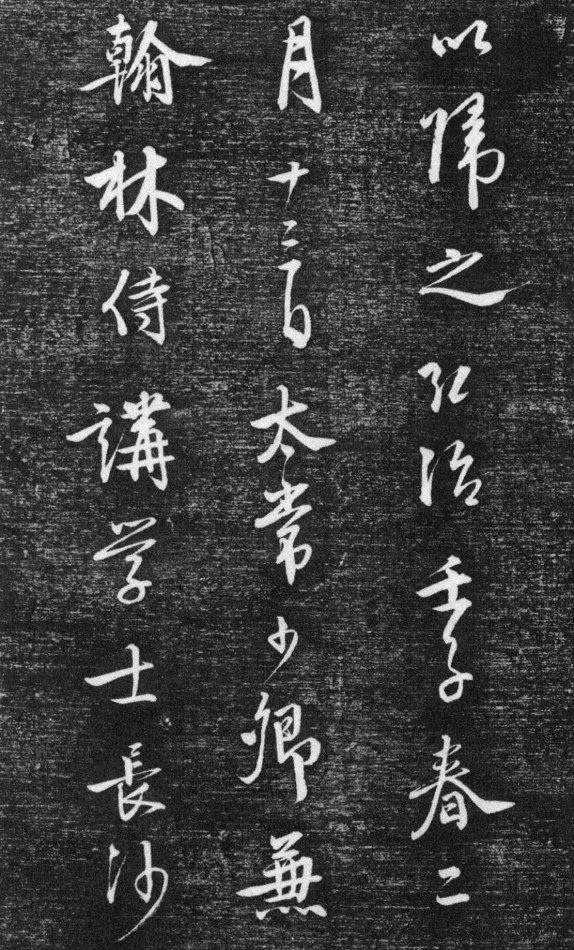 以歸之弘治壬子春二
月十二日太常少卿兼
翰林侍講学士長沙